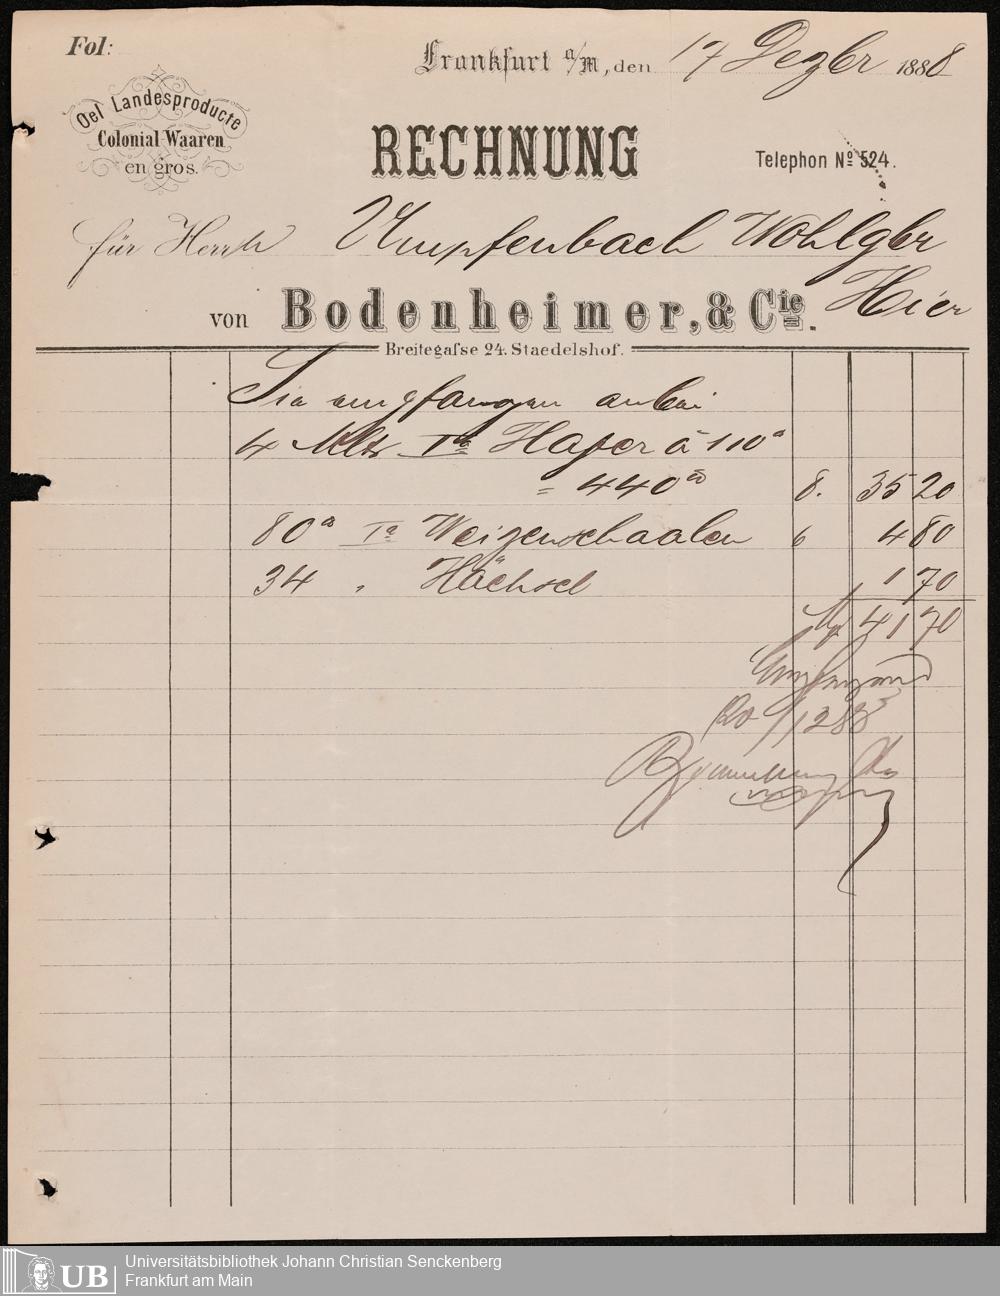 Fol:
Frankfurt a/M, den 17 Dezbr 1888
Oel Landesproducte
Colonial-Waaren
en gros.
RECHNUNG
Telephon No 524.
für Herrn Umpfenbach Wohlgbr
Hier
von Bodenheimer, & Cie.
Breitegasse 24. Staedelshof.
Sie empfangen anbei
4 Mltr Ia Hafer à 110
= 440 8. 35 20
80 Ia Weizenschaalen 6 4 80
34 " Häcksel 1 70
41 70
Empfangen
Universitätsbibliothek Johann Christian Senckenberg
Frankfurt am Main
UB